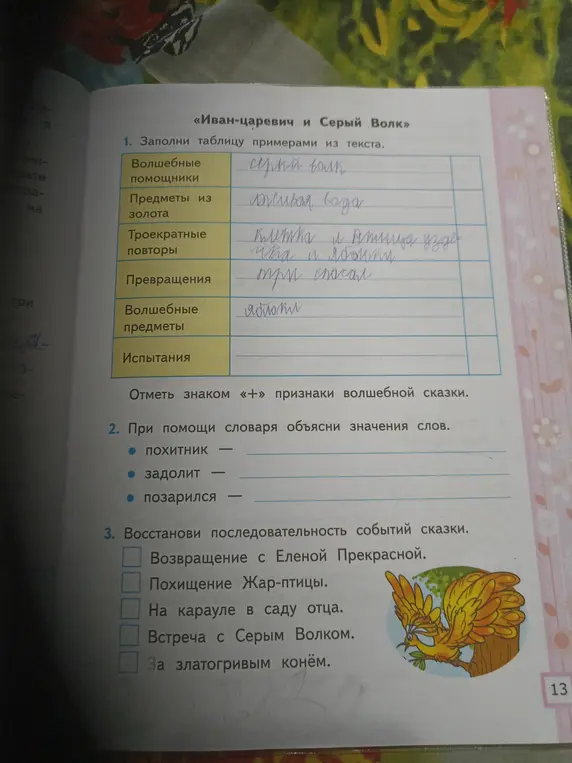 «Иван-царевич и Серый Волк»
1. Заполни таблицу примерами из текста.
Волшебные помощники
серый волк
Предметы из золота
живая вода
Троекратные повторы
клетка и птица узде
чка и яблоки
Превращения
три спасал
Волшебные предметы
яблоки
Испытания
Отметь знаком «+» признаки волшебной сказки.
2. При помощи словаря объясни значения слов.
похитник —
задолит —
позарился —
3. Восстанови последовательность событий сказки.
Возвращение с Еленой Прекрасной.
Похищение Жар-птицы.
На карауле в саду отца.
Встреча с Серым Волком.
За златогривым конём.
13